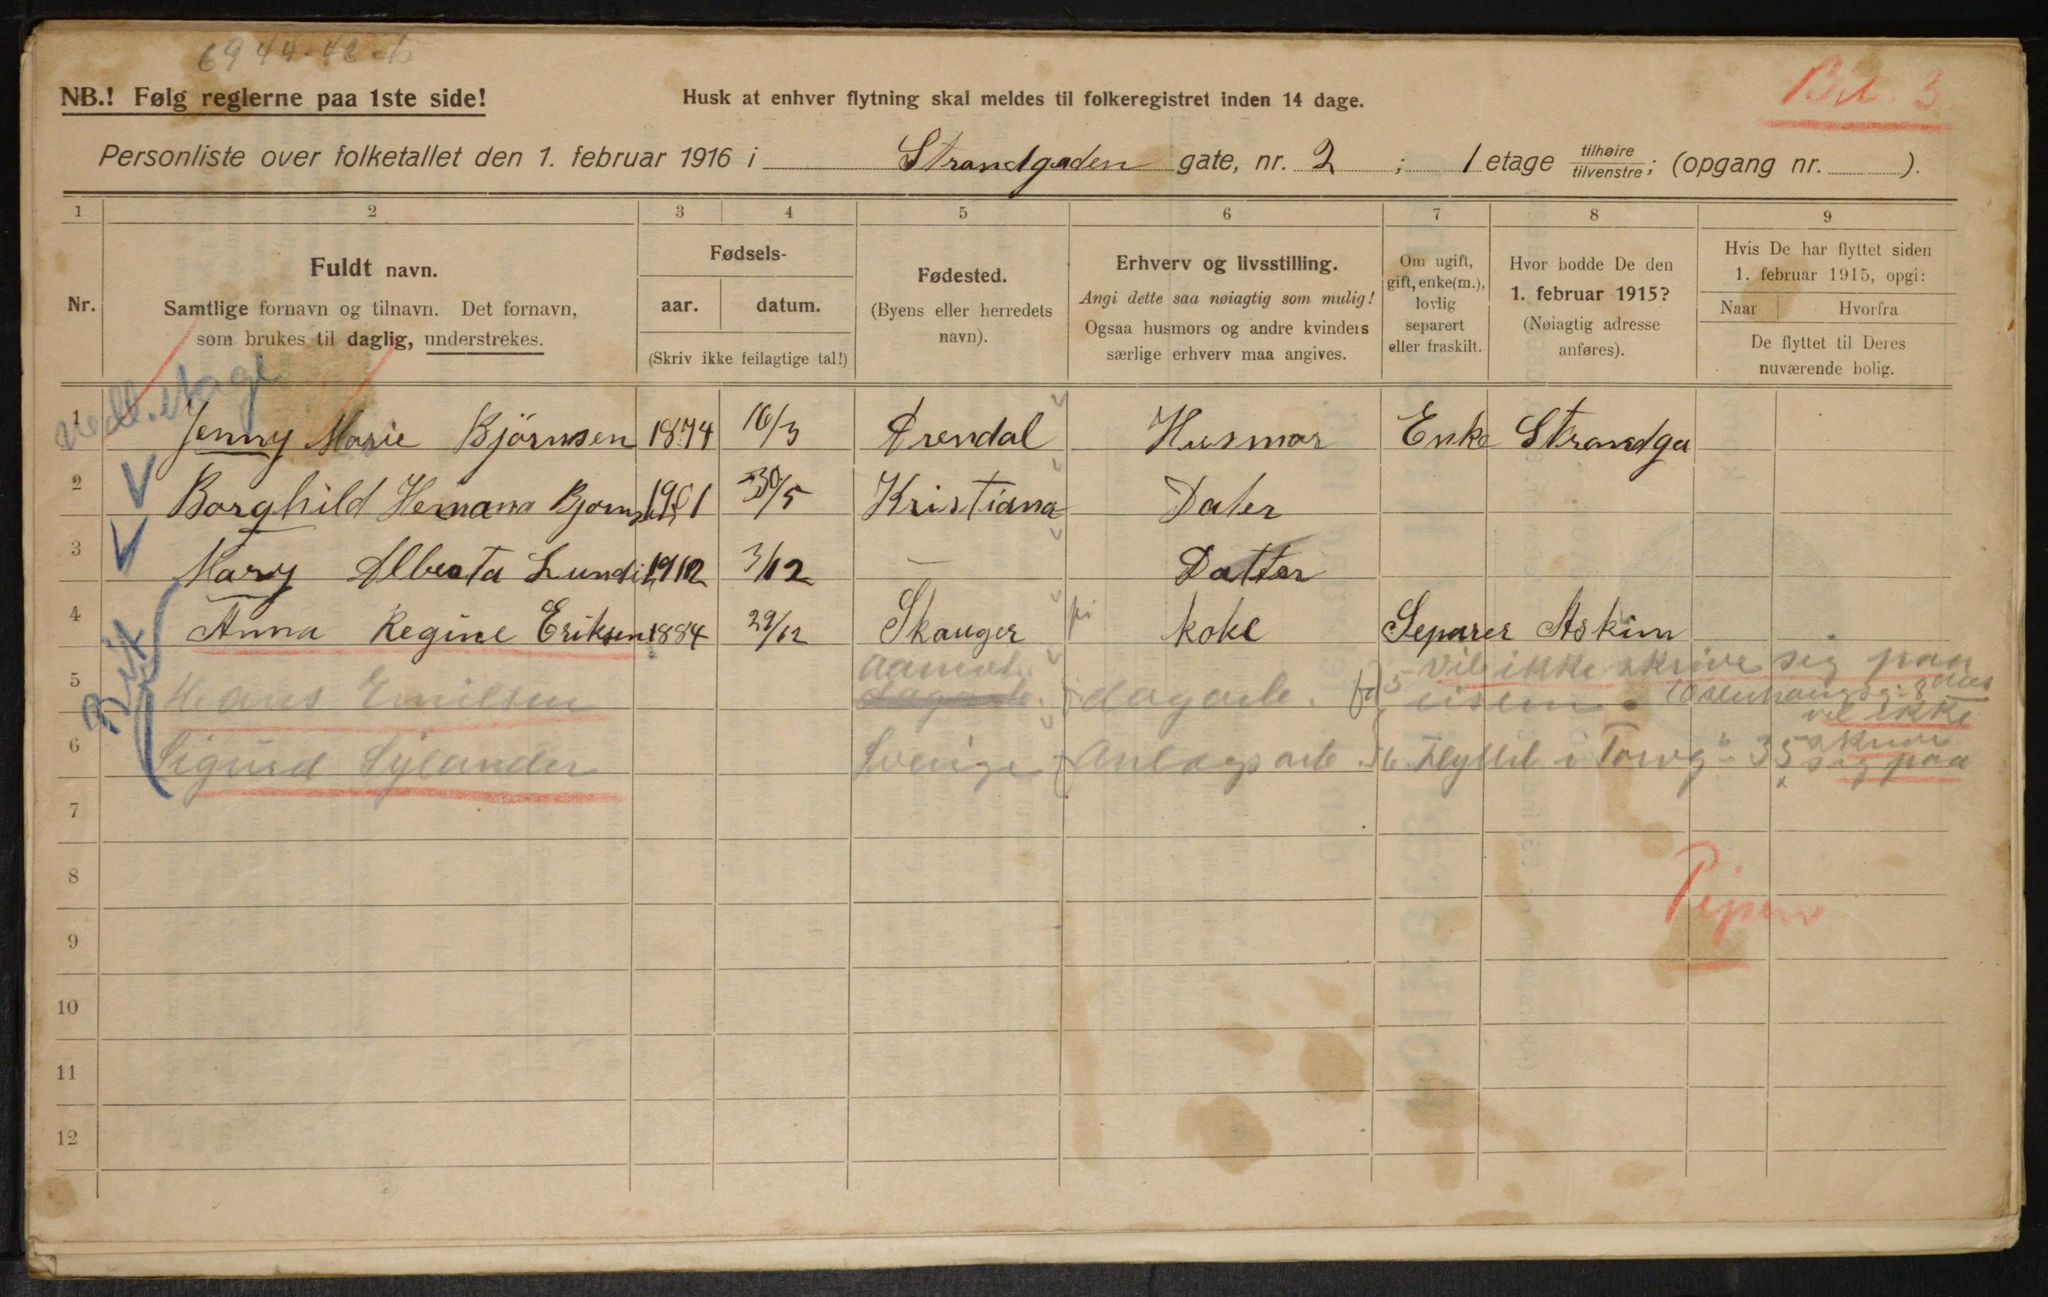 NB.! Følg reglerne paa 1ste side!
Husk at enhver flytning skal meldes til folkeregistret inden 14 dage.
Personliste over folketallet den 1. februar 1916 i Strandgaden gate, nr. 2 ; 1 etage tilhøire tilvenstre; (opgang nr. ).
1 2 3 4 5 6 7 8 9
Nr.
Fuldt navn.
Samtlige fornavn og tilnavn. Det fornavn,
som brukes til daglig, understrekes.
Fødsels-
aar. datum.
(Skriv ikke feilagtige tal!)
Fødested.
(Byens eller herredets
navn).
Erhverv og livsstilling.
Angi dette saa nøiagtig som mulig!
Ogsaa husmors og andre kvinders
særlige erhverv maa angives.
Om ugift,
gift, enke(m.),
lovlig
separert
eller fraskilt.
Hvor bodde De den
1. februar 1915?
(Nøiagtig adresse
anføres).
Hvis De har flyttet siden
1. februar 1915, opgi:
Naar Hvorfra
De flyttet til Deres
nuværende bolig.
1 Jenny Marie Björnsen 1874 16/3 Arendal Husmor Enke Strandga
2 Borghild Hemana 1901 30/5 Kristiana Dater
3 Mary Alberta 1912 3/12 — Datter
4 Anna Regine Eriksen 1884 29/12 Skauger koke Separer Askim
5 Hans Emilsen dagarb. vil ikke skrive sig paa
vil ikke
6 Sigurd Sylander Sverige Anlægsarb. Flyttet i Torvg 35 skrive
sig paa
7
8
9
10
11
12